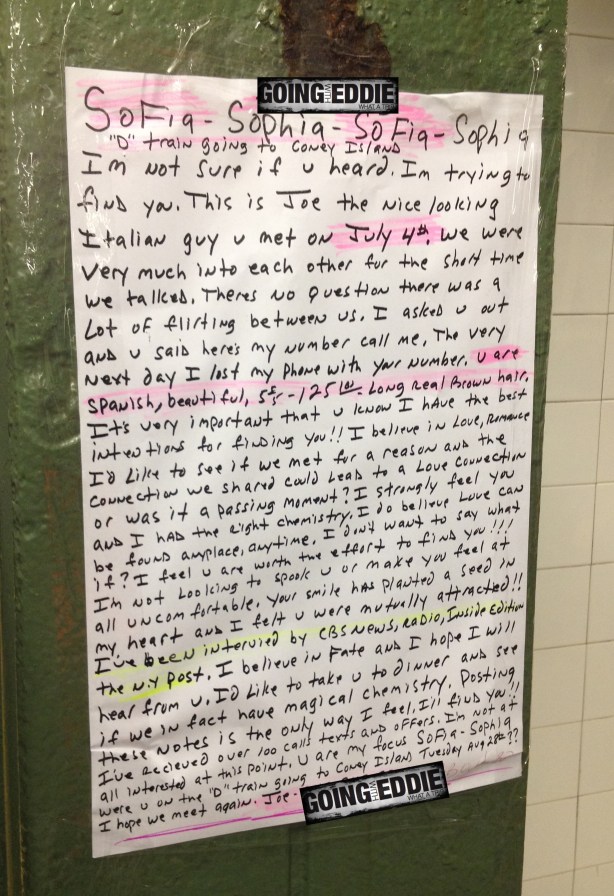 GOING WITH EDDIE
WHAT A TRIP
SoFia - Sophia - SoFia - Sophia
"D" train going to Coney Island
Im not sure if u heard. Im trying to
find you. This is Joe the nice looking
Italian guy u met on July 4th. We were
very much into each other for the short time
we talked. Theres no question there was a
Lot of flirting between us. I asked u out
and u said here's my number call me. The very
next day I lost my phone with your number. u are
spanish, beautiful, 5'5" - 125 lbs - Long Real Brown hair.
It's very important that u know I have the best
intentions for finding you!! I believe in Love, Romance
I'd Like to see if we met for a reason and the
connection we shared could Lead to a Love connection
or was it a passing moment? I strongly feel you
and I had the right chemistry. I do believe Love can
be found anyplace, anytime. I don't want to say what
if? I feel u are worth the effort to find you!!!
I'm not Looking to spook u or make you feel at
all uncomfortable. your smile has planted a seed in
my heart and I felt u were mutually attracted!!
I've been intervied by CBS News, radio, Inside Edition
the N.Y Post. I believe in Fate and I hope I will
hear from u. I'd Like to take u to dinner and see
if we in fact have magical chemistry. Posting
these notes is the only way I feel I'll find you!!
I've recieved over 100 calls texts and offers. I'm not at
all interested at this point. u are my focus SoFia - Sophia
were u on the "D" train going to Coney Island Tuesday Aug 28th??
I hope we meet again. Joe -
GOING WITH EDDIE
WHAT A TRIP